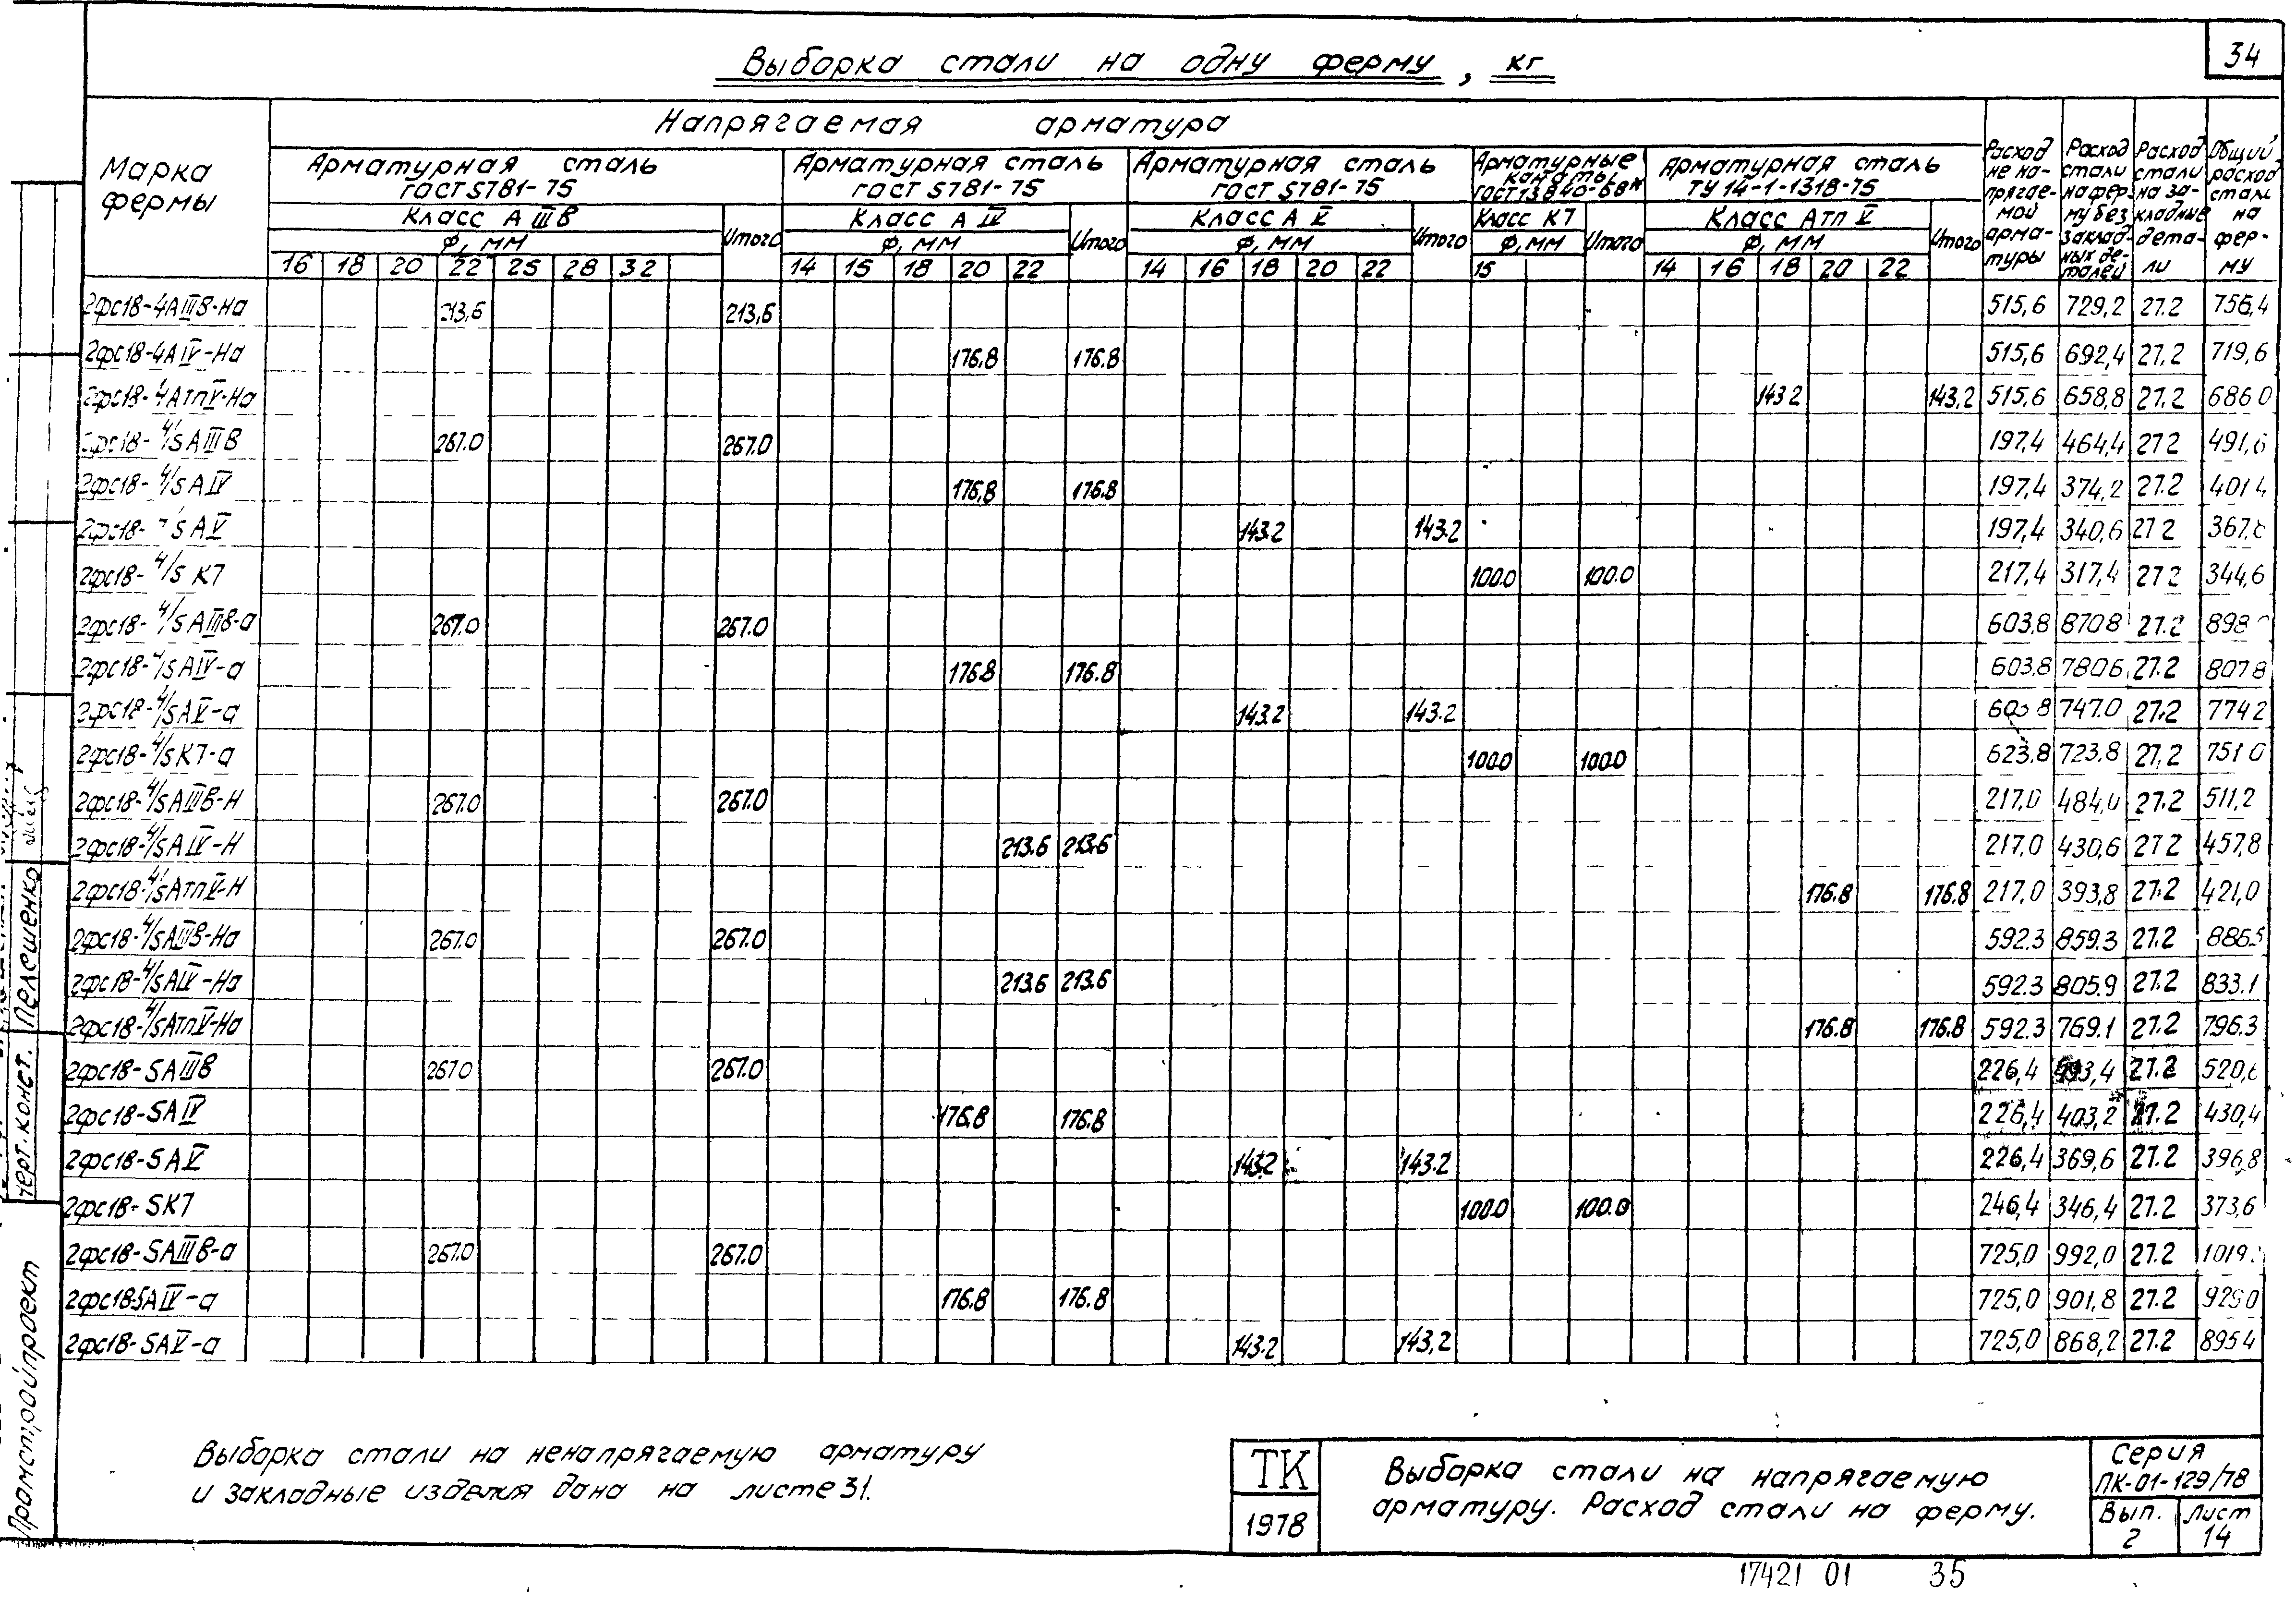 34
Выборка стали на одну ферму, кг
Марка фермы
Напрягаемая арматура
Арматурная сталь ГОСТ 5781-75
Арматурная сталь ГОСТ 5781-75
Арматурная сталь ГОСТ 5781-75
Арматурные канаты ГОСТ 13840-68*
Арматурная сталь ТУ 14-1-1318-75
Расход не напрягаемой арматуры
Расход стали на ферму без закладных деталей
Расход стали на закладные детали
Общий расход стали на ферму
Класс А IIIв Итого Класс А IV Итого Класс А V Итого Класс К7 Итого Класс Атп V Итого
ф, мм ф, мм ф, мм ф, мм ф, мм
16 18 20 22 25 28 32 14 15 18 20 22 14 16 18 20 22 15 14 16 18 20 22
2фс18-4АIIIв-На 213,6 213,6 515,6 729,2 27.2 756,4
2фс18-4АIV-На 176.8 176.8 515,6 692,4 27.2 719,6
2фс18-4АтпV-На 143.2 143,2 515,6 658,8 27.2 686 0
2фс18-4/5АIIIв 267.0 267.0 197,4 464,4 27 2 491,6
2фс18-4/5АIV 176,8 176.8 197,4 374,2 27.2 401 4
2фс18- /5АV 143.2 143.2 197,4 340,6 27 2 367,
2фс18-4/5К7 100.0 100.0 217,4 317,4 27 2 344,6
2фс18-4/5АIIIв-а 267.0 267.0 603,8 870 8 27.2 898
2фс18-4/5АIV-а 176.8 176.8 603,8 780 6 27.2 807 8
2фс18-4/5АV-а 143.2 143.2 603 8 747.0 27.2 774 2
2фс18-4/5К7-а 100.0 100.0 623,8 723,8 27,2 751 0
2фс18-4/5АIIIв-Н 267.0 267.0 217,0 484,0 27.2 511,2
2фс18-4/5АIV-Н 213.6 213.6 217,0 430,6 27 2 457,8
2фс18-4/5АтпV-Н 176.8 176.8 217,0 393,8 27.2 421,0
2фс18-4/5АIIIв-На 267.0 267.0 592.3 859.3 27.2 886.5
2фс18-4/5АIV-На 213.6 213.6 592.3 805.9 27.2 833.1
2фс18-4/5АтпV-На 176.8 176.8 592.3 769.1 27.2 796.3
2фс18-5АIIIв 267 0 267.0 226,4 493,4 27.2 520,6
2фс18-5АIV 176.8 176.8 226,4 403,2 27.2 430,4
2фс18-5АV 143.2 143.2 226,4 369,6 27.2 396,8
2фс18-5К7 100.0 100.0 246,4 346,4 27.2 373,6
2фс18-5АIIIв-а 267.0 267.0 725,0 992,0 27.2 1019.
2фс18-5АIV-а 176.8 176.8 725,0 901,8 27.2 929 0
2фс18-5АV-а 143.2 143,2 725,0 868,2 27.2 895 4
Выборка стали на ненапрягаемую арматуру
и закладные изделия дана на листе 31.
ТК
1978
Выборка стали на напрягаемую
арматуру. Расход стали на ферму.
Серия
ПК-01-129/78
Вып. Лист
2 14
17421 01 35
Промстройпроект
черт. конст. Пелешенко